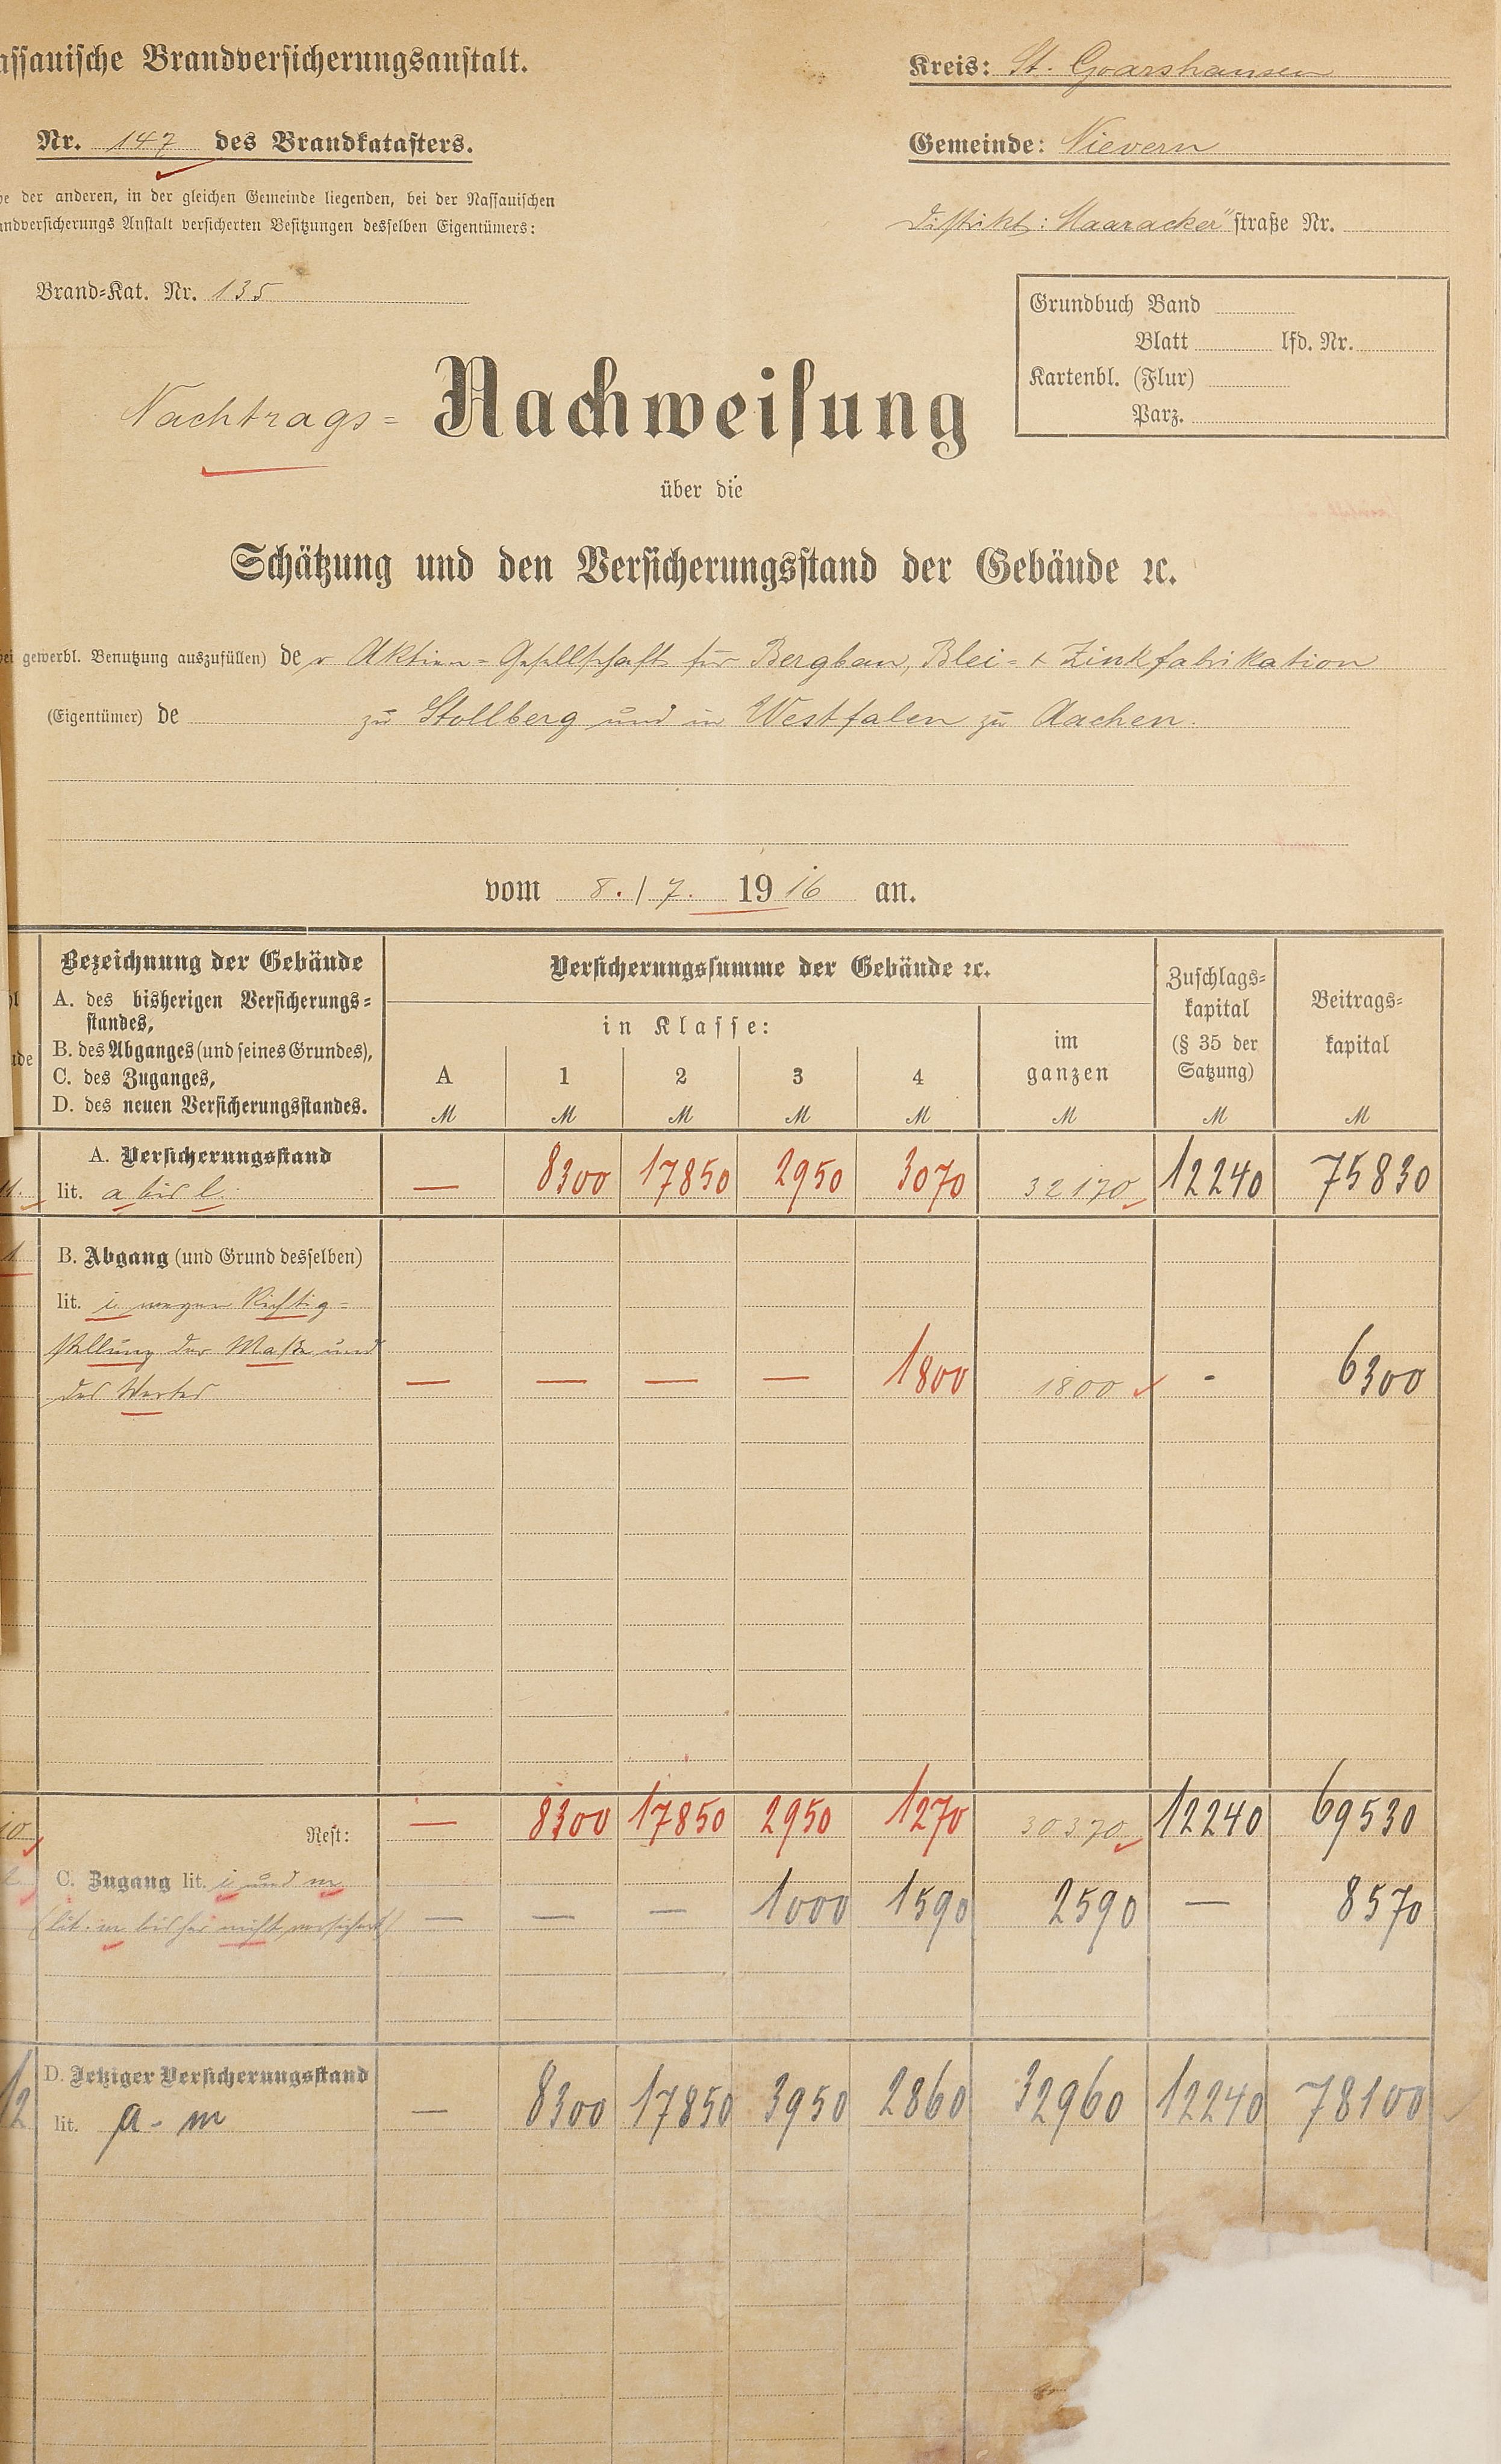 assauische Brandversicherungsanstalt.
Kreis: St. Goarshausen
Nr. 147 des Brandkatasters.
Gemeinde: Nievern
be der anderen, in der gleichen Gemeinde liegenden, bei der Nassauischen
andversicherungs Anstalt versicherten Besitzungen desselben Eigentümers:
Distrikt: Maaracker" straße Nr.
Brand-Kat. Nr. 135
Grundbuch Band
Blatt lfd. Nr.
Kartenbl. (Flur)
Parz.
Nachtrags= Nachweisung
über die
Schätzung und den Versicherungsstand der Gebäude ꝛc.
bei gewerbl. Benutzung auszufüllen) der Aktien=Gesellschaft für Bergbau, Blei= & Zinkfabrikation
(Eigentümer) de zu Stollberg und in Westfalen zu Aachen.
vom 8./7. 1916 an.
Bezeichnung der Gebäude
A. des bisherigen Versicherungs=
standes,
B. des Abganges (und seines Grundes),
C. des Zuganges,
D. des neuen Versicherungsstandes.
Versicherungssumme der Gebäude ꝛc.
in Klasse:
A 1 2 3 4
im
ganzen
Zuschlags=
kapital
(§ 35 der
Satzung)
Beitrags=
kapital
M M M M M M M M
A. Versicherungsstand
lit. a bis l. — 8300 17850 2950 3070 32170 12240 75830
B. Abgang (und Grund desselben)
lit. i wegen Richtig=
stellung der Maße und
des Wertes — — — — 1800 1800 - 6300
Rest: — 8300 17850 2950 1270 30370 12240 69530
C. Zugang lit. i und m
(lit. m bisher nicht versichert) — — — 1000 1590 2590 — 8570
D. Jetziger Versicherungsstand
12 lit. a - m — 8300 17850 3950 2860 32960 12240 78100